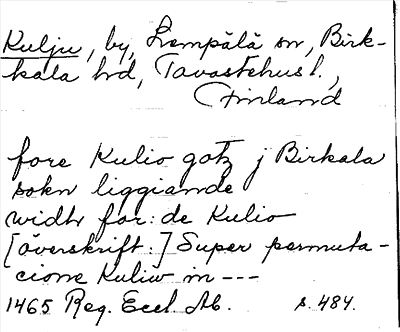 Kulju, by, Lempälä sn, Birk-
kala hd, Tavastehus l.,
Finland
fore Kulio gotz j Birkala
sokn liggiande
widh for: de Kulio
[överskrift:] Super permuta-
cione Kuliw in ---
1465 Reg. Eccl. Ab. s. 484.